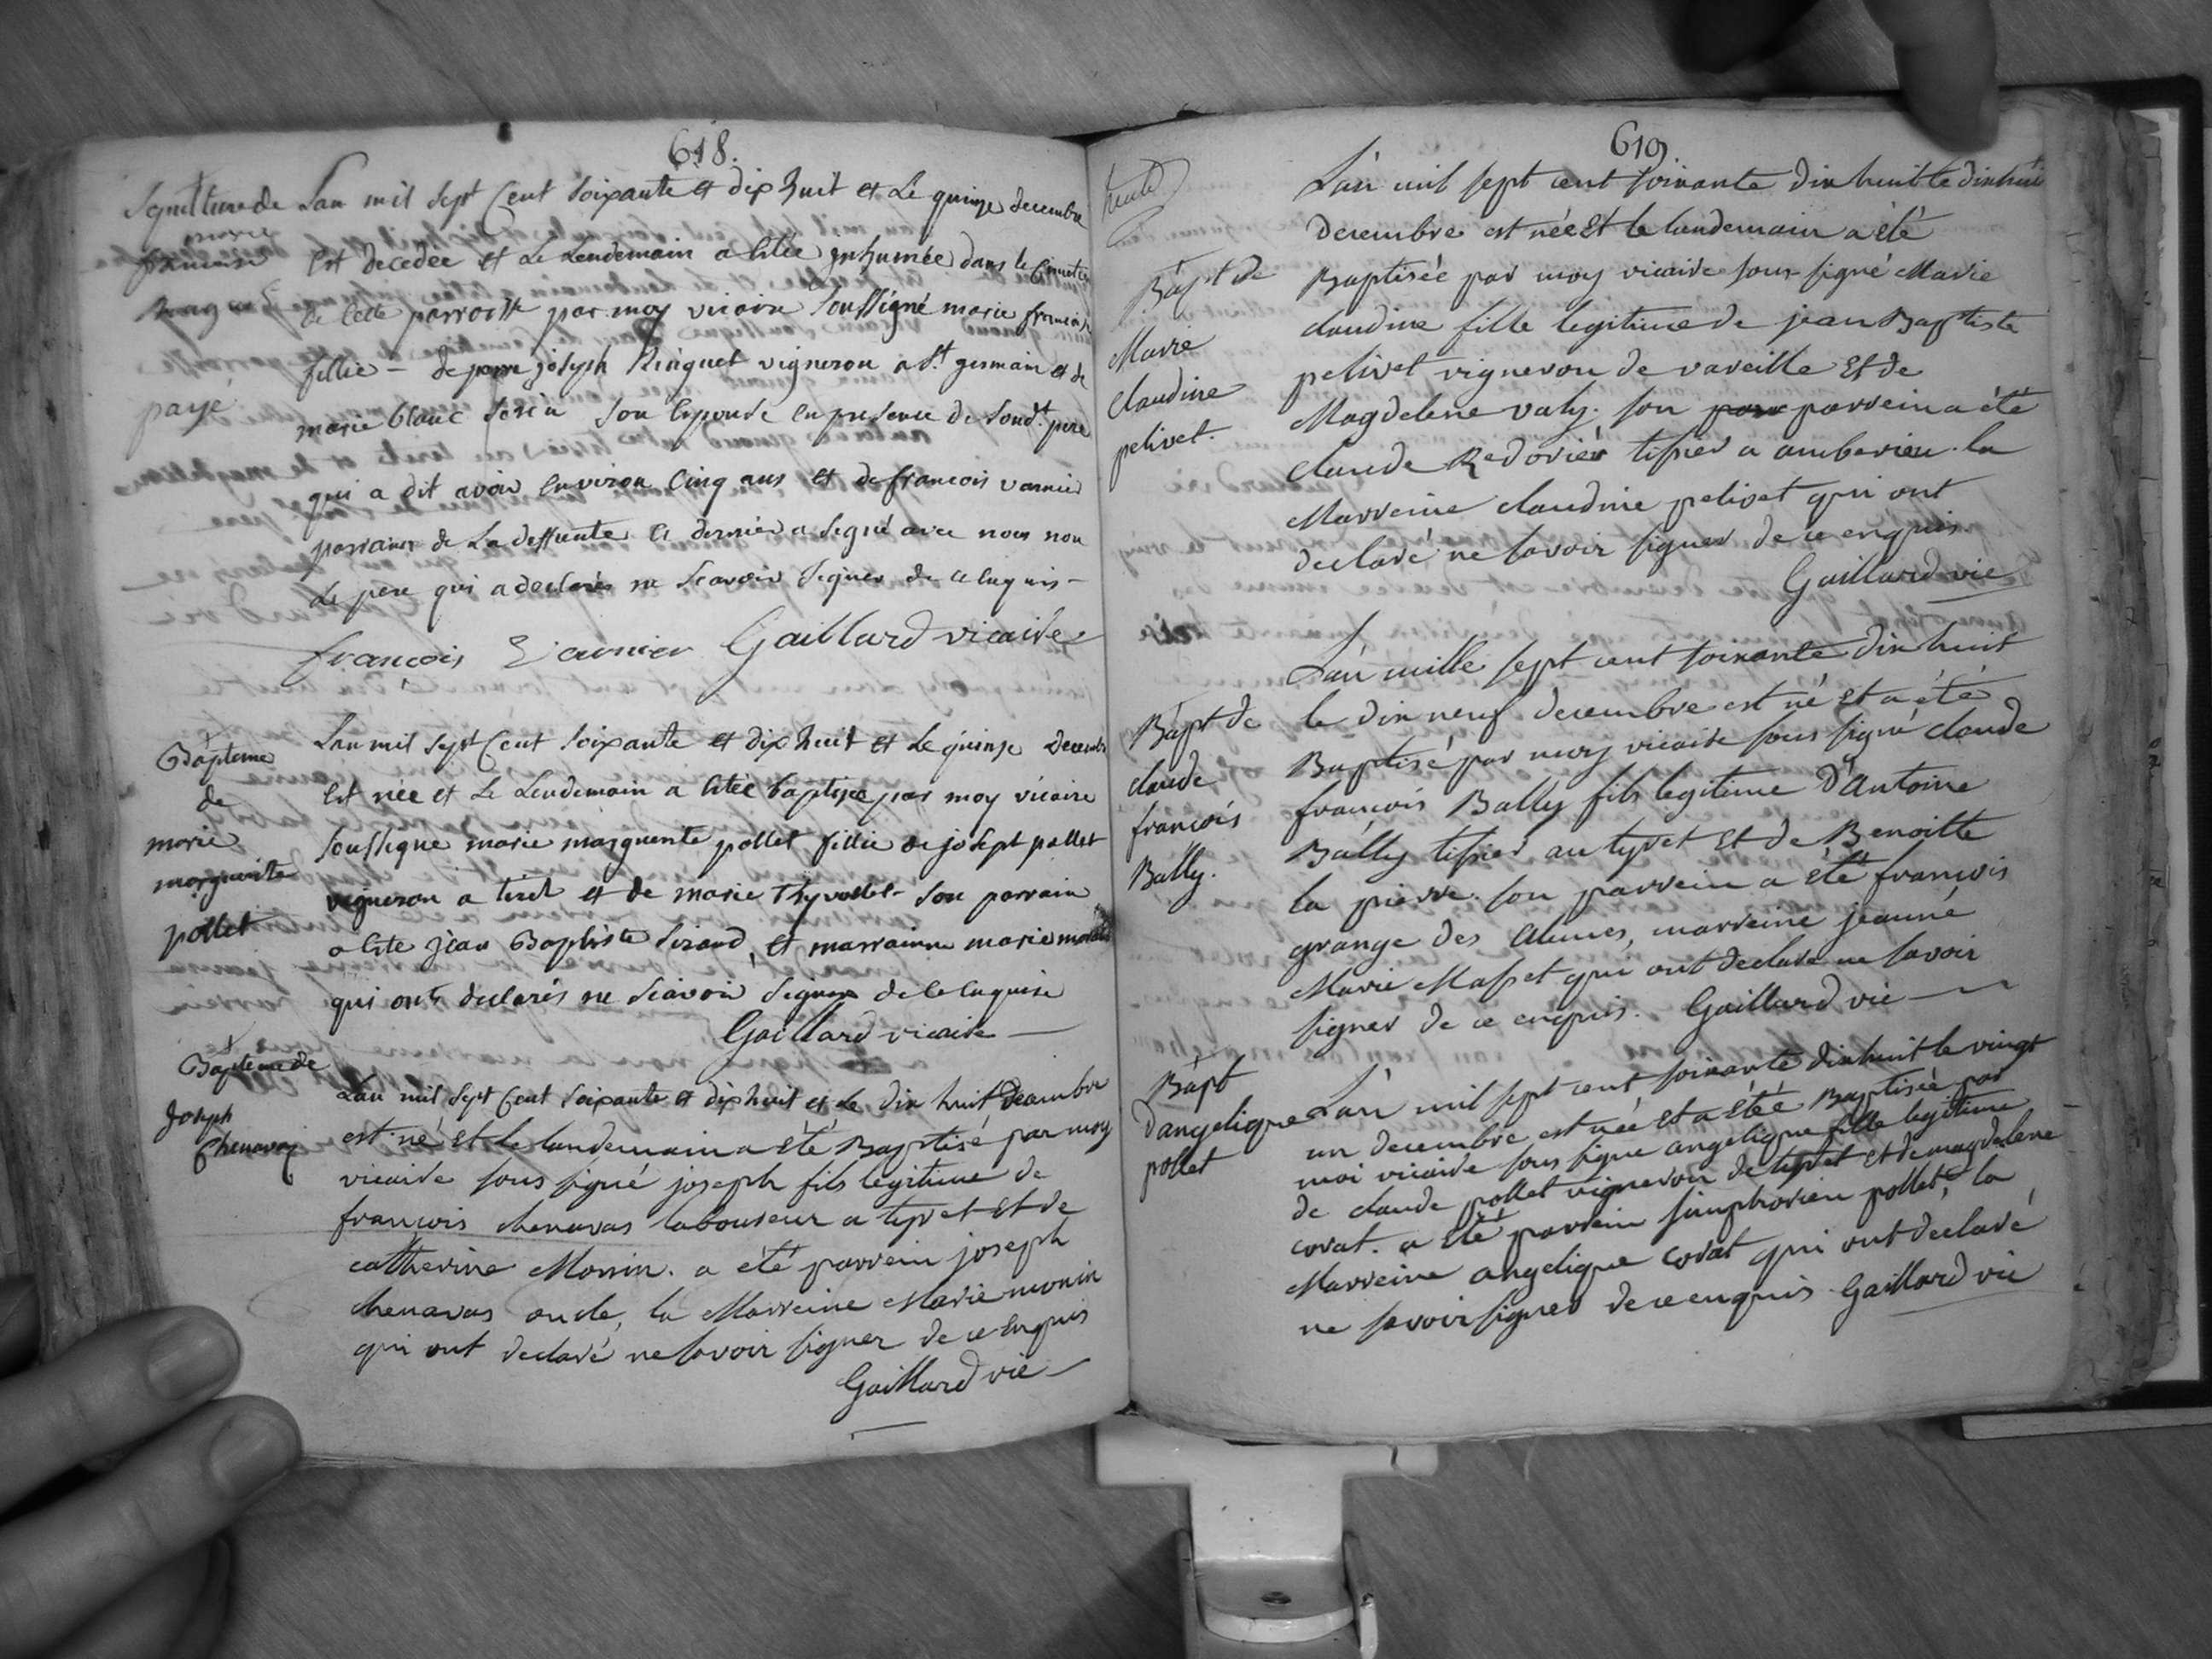 618.
Sepulture de
marie
francoise
payé
Lan mil sept Cent soixante et dix huit et Le quinze decembre
Est decedée et Le Lendemain a Etée inhumée dans le Cimetiere
de Cette parroisse par moy vicaire soussigné marie francoise
fillie – de joseph Ringuet vigneron a St. germain et de
marie blanc son Epouse En presence de sond.t pere
qui a dit avoir Environ Cinq ans et de francois varnier
parrain de La deffunte ce dernier a signé avec nous non
le pere qui a declarés ne scavoir signer de ce Enquis –
françois varnier Gaillard vicaire
Bapteme
de
marie
marguerite
pollet
Lan mil sept Cent soixante et dix huit et Le quinze decembre
Est née et Le Lendemain a Etée baptisée par moy vicaire
soussigné marie marguerite pollet fillie de josept pollet
vigneron a tiret et de marie Thyvollet – son parrain
a Ete jean Baptiste sirand, et marrainne marie
qui onts declarés ne sçavoir signer de ce Enquise
Gaillard vicaire
Bapteme de
Joseph
Chenavas
Lan mil sept Cent soixante et dix huit et Le dix huit decembre
est né et le landemain a été Baptisé par moy
vicaire sous signé joseph fils legitime de
françois chenavas laboureur a tyret et de
catherine Monin. a été parrein joseph
chenavas oncle, la Marreine Marie monin
qui ont declaré ne savoir signer de ce enquis
Gaillard vic
619
Bapt de
Marie
Claudine
pelivet.
L'an mil sept cent soixante dix huit le dix huit
Decembre est née et le landemain a été
Baptisée par moy vicaire sous signé Marie
claudine fille legitime de jean Baptiste
pelivet vigneron de vareille et de
Magdelene valy. son parrein a été
claude Redorier tissier a amberieu. la
Marreine claudine pelivet qui ont
declaré ne savoir signer de ce enquis
Gaillard vic
Bapt de
claude
françois
Bally.
L'an mille sept cent soixante dix huit
le dix neuf decembre est né et a été
Baptisé par moy vicaire sous signé claude
françois Bally fils legitime d'Antoine
Bally tissier au tyret et de Benoitte
la pierre. son parrein a été françois
grange des Alimes, marreine jeanne
Marie Masset qui ont declaré ne savoir
signer de ce enquis. Gaillard vic
Bapt
d'angelique
pollet
L'an mil sept cent soixante dix huit le vingt
un decembre est née et a étée Baptisée par
moi vicaire sous signé angelique fille legitime
de claude pollet vigneron de tyret et de magdelene
corat. a été parrein simphorien pollet, la
Marreine angelique corat qui ont declaré
ne savoir signer de ce enquis Gaillard vic